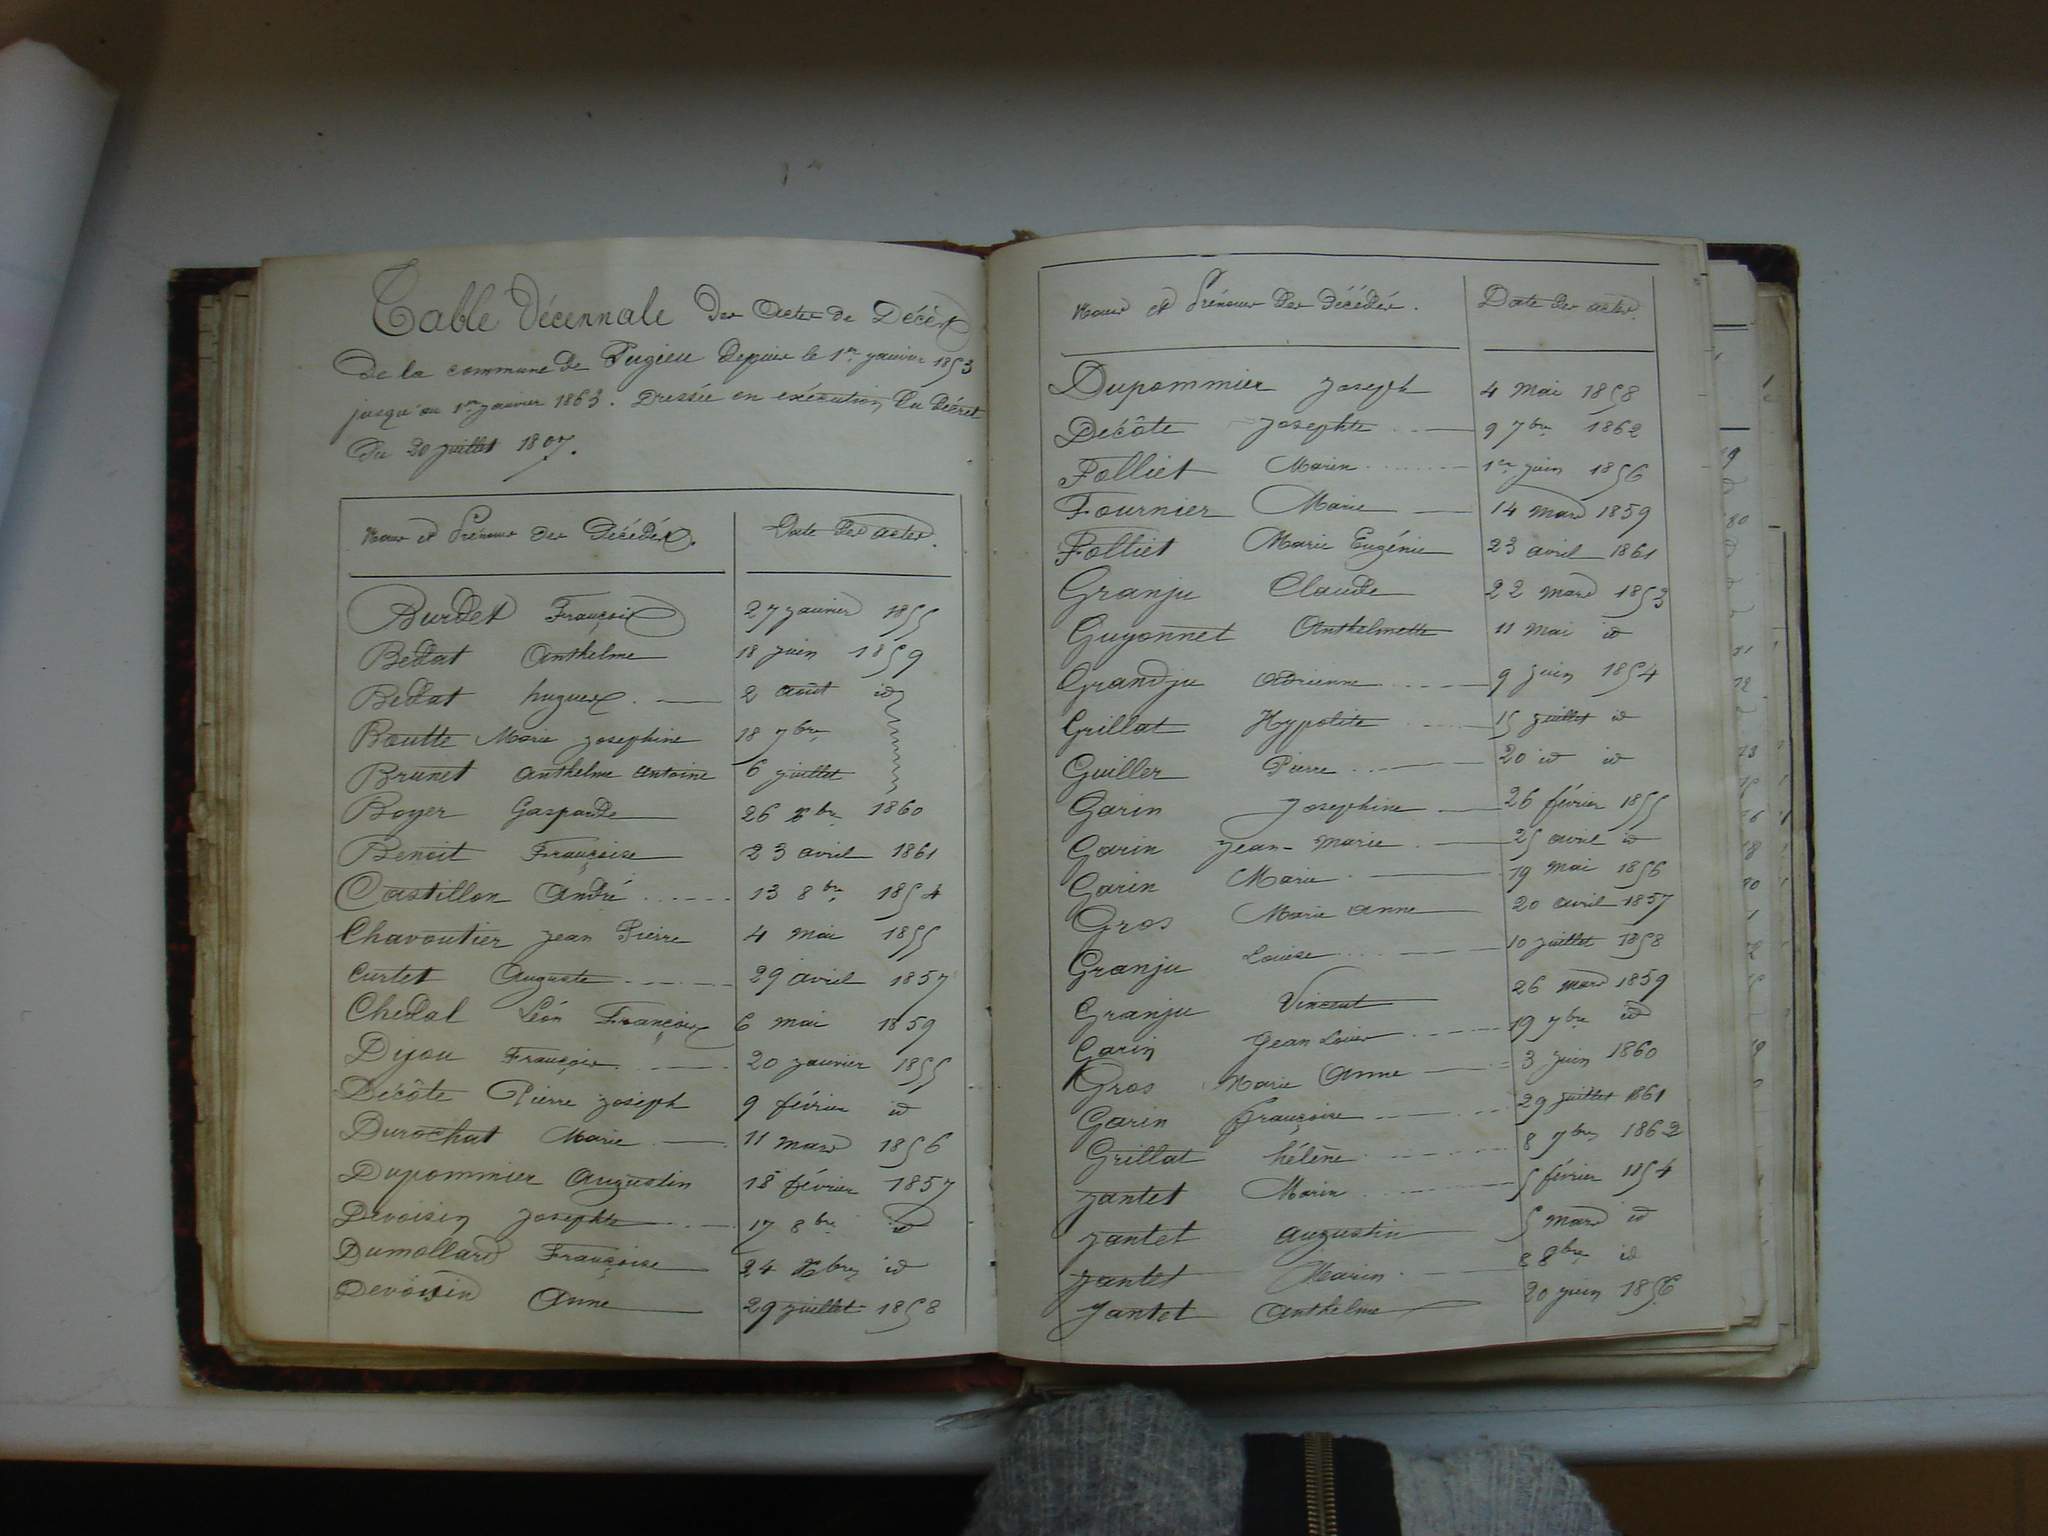 Table Décennale des Actes de Décès
de la commune de Pugieu depuis le 1er janvier 1853
jusqu'au 1er janvier 1863. Dressée en exécution du Décret
du 20 juillet 1807.
Noms et Prénoms des Décédés. Date des actes.
Burdet François 27 janvier 1855
Bedat Anthelme 18 juin 1859
Bedat hugues 2 août id
Boutte Marie Josephine 18 7bre
Brunet Anthelme Antoine 6 juillet
Boyer Gasparde 26 xbre 1860
Benoit Françoise 23 avril 1861
Castillon André 13 8bre 1854
Chavoutier Jean Pierre 4 mai 1855
Curtet Auguste 29 avril 1857
Chedal Léon François 6 mai 1859
Dijou François 20 janvier 1855
Décôte Pierre Joseph 9 février id
Durochat Marie 11 mars 1856
Dupommier Augustin 18 février 1857
Devoisin Josephte 17 8bre id
Dumollard Françoise 24 Xbre id
Devoisin Anne 29 juillet 1858
Noms et Prénoms des décédés. Date des actes.
Dupommier Joseph 4 mai 1858
Décôte Josephte 9 7bre 1862
Folliet Marin 1er juin 1856
Fournier Marie 14 mars 1859
Folliet Marie Eugénie 23 avril 1861
Granju Claude 22 mars 1853
Guyonnet Anthelmette 11 mai id
Grandju Adrienne 9 juin 1854
Grillat Hypolite 15 juillet id
Guiller Pierre 20 id id
Garin Josephine 26 février 1855
Garin Jean-Marie 25 avril id
Garin Marie 19 mai 1856
Gros Marie Anne 20 avril 1857
Granju Louise 10 juillet 1858
Granju Vincent 26 mars 1859
Garin Jean Louis 19 7bre id
Gros Marie Anne 3 juin 1860
Garin Françoise 29 juillet 1861
Grillat hélène 8 7bre 1862
Jantet Marin 5 février 1854
Jantet Augustin 5 mars id
Jantet Marin 8bre id
Jantet Anthelme 20 juin 1856